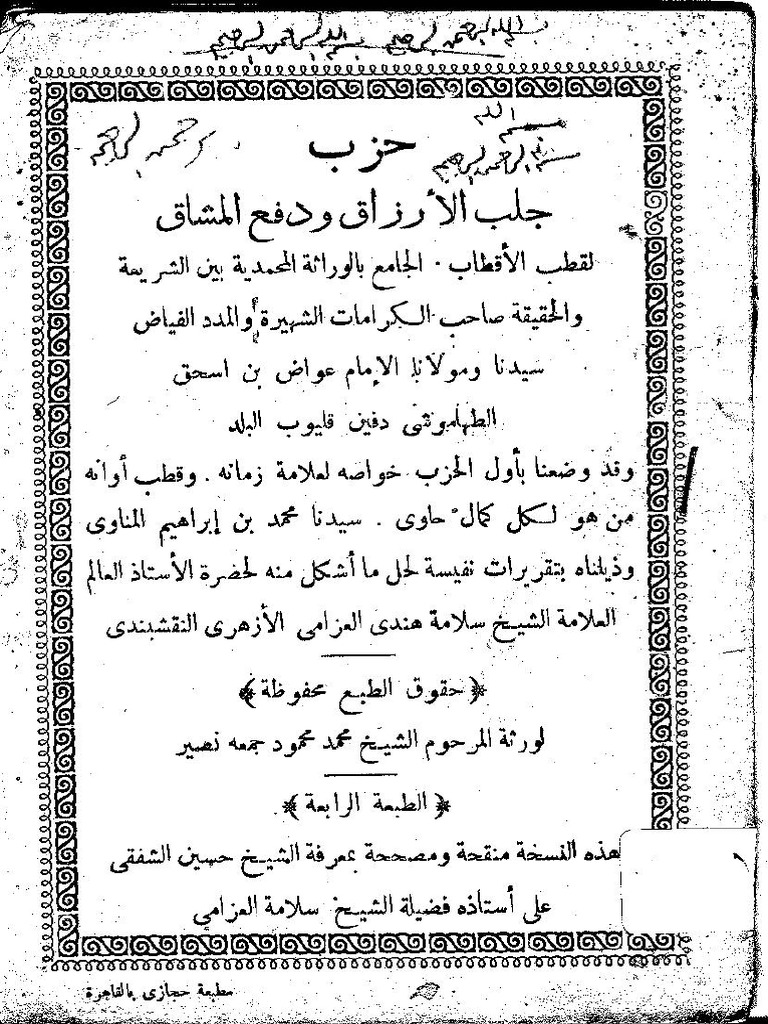 بسم الله الرحمن الرحيم بسم الله الرحمن الرحيم
بسم الله
الرحمن الرحيم
بسم الله الرحمن الرحيم
حزب
جلب الأرزاق ودفع المشاق
لقطب الأقطاب . الجامع بالوراثة المحمدية بين الشريعة
والحقيقة صاحب الكرامات الشهيرة والمدد الفياض
سيدنا ومولانا الإمام عواض بن اسحق
الطهاموشى دفين قليوب البلد
وقد وضعنا بأول الحزب خواصه لعلامة زمانه . وقطب أوانه
من هو لكل كمال حاوى . سيدنا محمد بن إبراهيم المناوى
وذيلناه بتقريرات نفيسة لحل ما أشكل منه لحضرة الأستاذ العالم
العلامة الشيخ سلامة هندى العزامى الأزهرى النقشبندى
﴿حقوق الطبع محفوظة﴾
لورثة المرحوم الشيخ محمد محمود جمعه نصير
﴿الطبعة الرابعة﴾
هذه النسخة منقحة ومصححة بمعرفة الشيخ حسين الشفقى
على أستاذه فضيلة الشيخ سلامة العزامى
مطبعة حجازى بالقاهرة